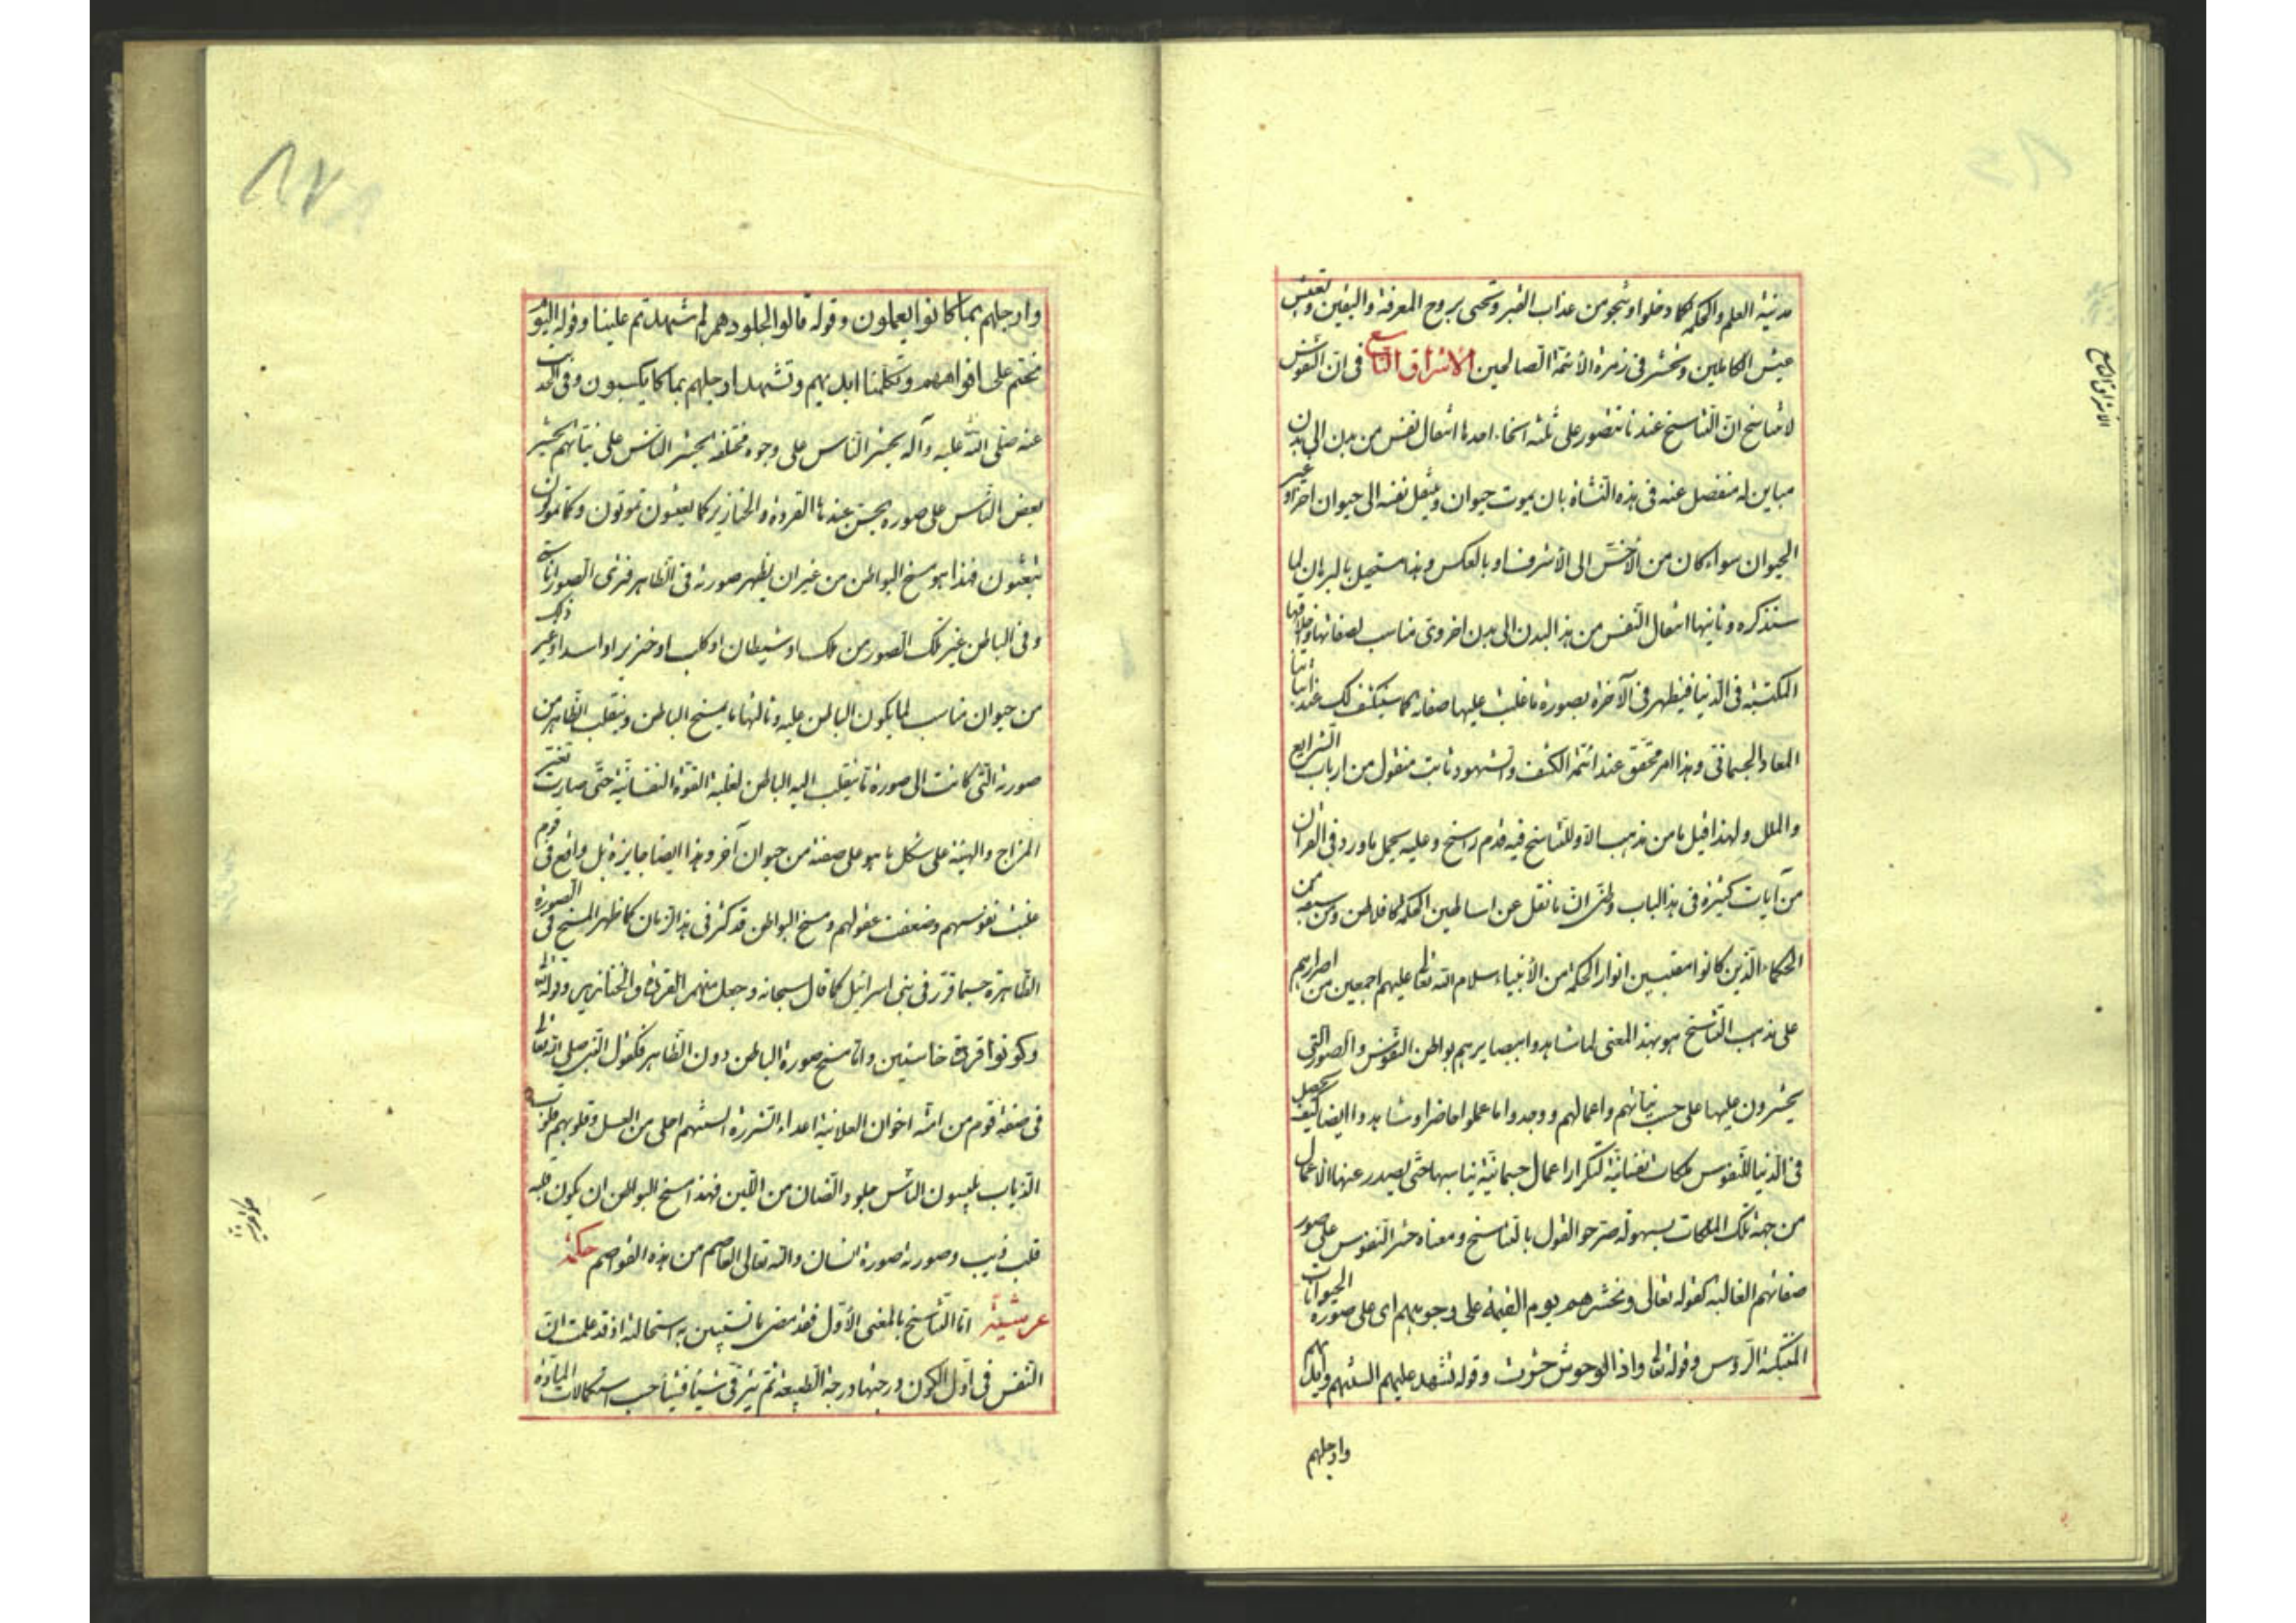 مدنية العلم والحكمة كما دخلوا وتنجو من عذاب القبر وتحيى بروح المعرفة واليقين وتعيش
عيش الكاملين وتحشر في زمرة الأئمة الصالحين الاشراق التاسع في ان النفوس
لا تتناسخ ان التناسخ عندنا يتصور على ثلثة انحاء احدها انتقال نفس من بدن الى بدن
مباين له منفصل عنه في هذه النشأة بان يموت حيوان وينتقل نفسه الى حيوان آخر او غير
الحيوان سواء كان من الأخس الى الأشرف او بالعكس وهذا مستحيل بالبرهان لما
سنذكره وثانيها انتقال النفس من هذا البدن الى بدن اخروى مناسب لصفاتها واخلاقها
المكتسبة في الدنيا فيظهر في الآخرة بصورة ما غلبت عليها صفاته كما سينكشف لك عند اثباتنا
المعاد الجسماني وهذا امر محقق عند ائمة الكشف والشهود ثابت منقول من ارباب الشرايع
والملل ولهذا قيل ما من مذهب الا وللتناسخ فيه قدم راسخ وعليه يحمل ما ورد في القرآن
من آيات كثيرة في هذا الباب وظني ان ما نقل عن اساطين الحكمة كافلاطن ومن سبقه من
الحكماء الذين كانوا مقتبسين انوار الحكمة من الأنبياء سلام الله تعالى عليهم اجمعين من اصرارهم
على مذهب التناسخ هو بهذا المعنى لما شاهدوا ببصايرهم بواطن النفوس والصور التي
يحشرون عليها على حسب نياتهم واعمالهم ووجدوا ما عملوا حاضرا وشاهدوا ايضا كيف تحصل
في الدنيا للنفوس ملكات نفسانية لتكرار اعمال جسمانية يناسبها حتى يصدر عنها الاعمال
من جهة تلك الملكات بسهولة صرحوا القول بالتناسخ ومعناه حشر النفوس على صور
صفاتهم الغالبة كقوله تعالى ونحشرهم يوم القيمة على وجوههم اى على صورة الحيوانات
المنتكسة الرؤس وقوله تعالى واذا الوحوش حشرت وقوله تشهد عليهم السنتهم وايديهم
وارجلهم
الاشراق التاسع
وارجلهم بما كانوا يعملون وقوله قالوا الجلودهم لم شهدتم علينا وقوله اليوم
نختم على افواههم وتكلمنا ايديهم وتشهد ارجلهم بما كانوا يكسبون وفي الحديث
عنه صلى الله عليه وآله يحشر الناس على وجوه مختلفة يحشر الناس على نياتهم يحشر
بعض الناس على صورة يحسن عندها القردة والخنازير كما تعيشون تموتون وكما تموتون
تبعثون فهذا هو مسخ البواطن من غير ان يظهر صورته في الظاهر فترى الصور اناسى
وفي الباطن غير تلك الصور من ملك او شيطان او كلب او خنزير او اسد او غير ذلك
من حيوان مناسب لما يكون الباطن عليه وثالثها ما يمسخ الباطن وينقلب الظاهر من
صورته التي كانت الى صورة ما ينقلب اليه الباطن لغلبة القوة النفسانية حتى صارت تغير
المزاج والهيئة على شكل ما هو على صفته من حيوان آخر وهذا ايضا جايز بل واقع في قوم
غلبت نفوسهم وضعفت عقولهم ومسخ البواطن قد كثر في هذا الزمان كما ظهر المسخ في الصورة
الظاهرة حسبما قرر في بني اسرائيل كما قال سبحانه وجعل منهم القردة والخنازير وقوله تعالى
وكونوا قردة خاسئين واما مسخ صورة الباطن دون الظاهر فكقول النبي صلى الله تعالى
في صفة قوم من امته اخوان العلانية اعداء السريرة السنتهم احلى من العسل وقلوبهم قلوب
الذياب يلبسون الناس جلود الضان من اللين فهذا مسخ البواطن ان يكون قلبه
قلب ذيب وصورته صورة انسان والله تعالى العاصم من هذه القواصم حكمة
عرشية اما التناسخ بالمعنى الأول فقد مضى ما تستبين به استحالته اذ قد علمت ان
النفس في اول الكون درجتها درجة الطبيعة ثم يترقى شيئا فشيئا حسب استكمالات المادة
حكمة عرشية